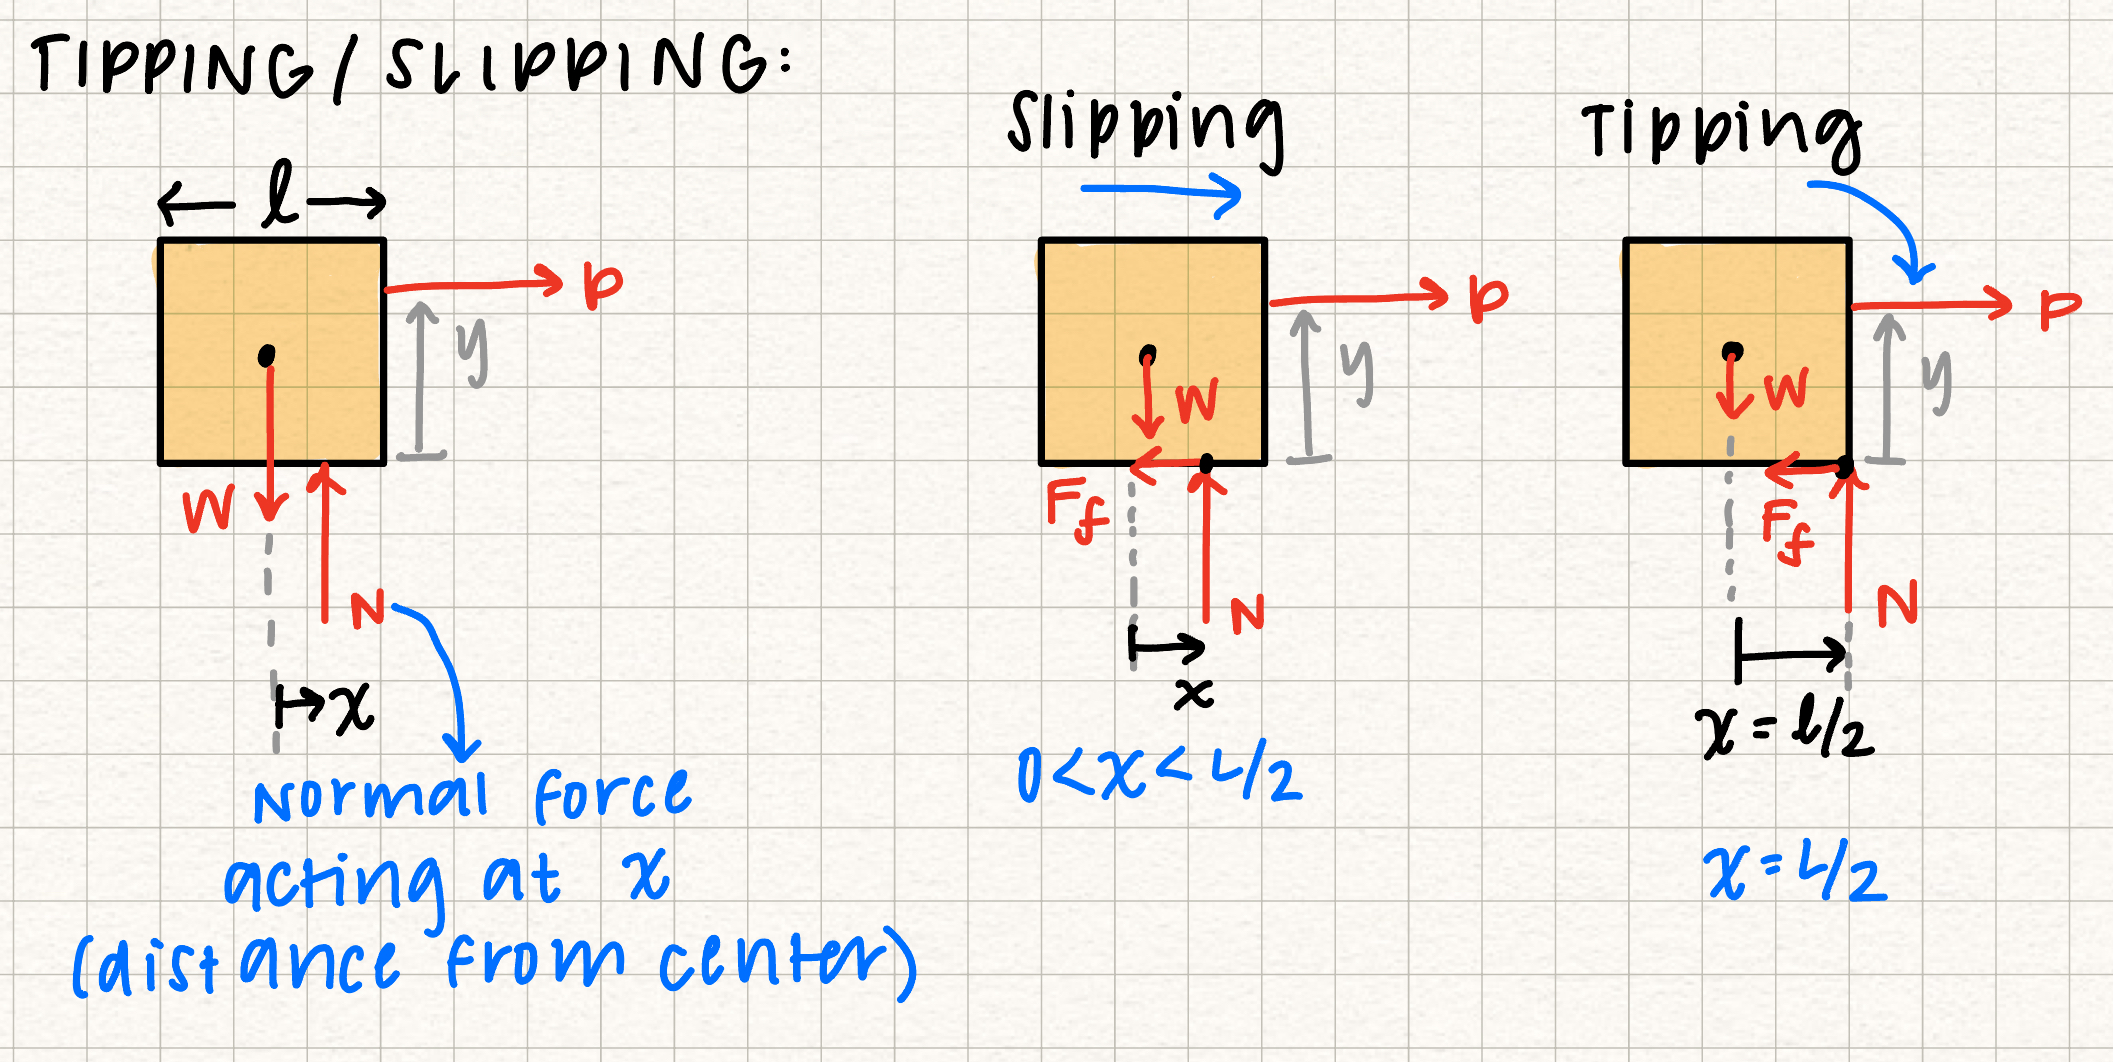 TIPPING/SLIPPING:
l
P
y
W
N
x
Normal force
acting at x
(distance from center)
Slipping
P
y
W
Ff
N
x
0<x<L/2
Tipping
P
y
W
Ff
N
x=l/2
x=L/2